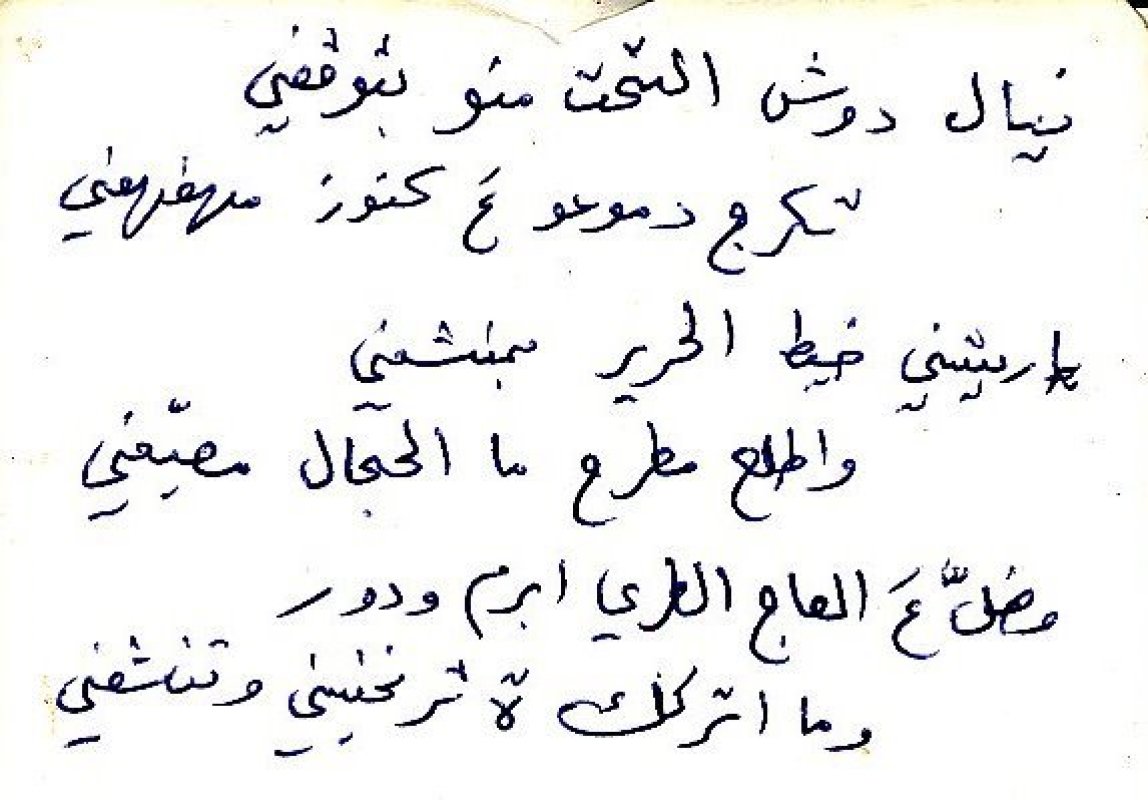 نيال دوش التحت منو بتوقفي
تكرج دموعو عَ كنوز مهفهفي
ياريتني خيط الحرير بمنشفي
واطلع مطرح ما الحجال مصيّفي
وضلّ عَ العاج الطري ابرم ودور
وما اتركك ة ترنخيني وتنشفي